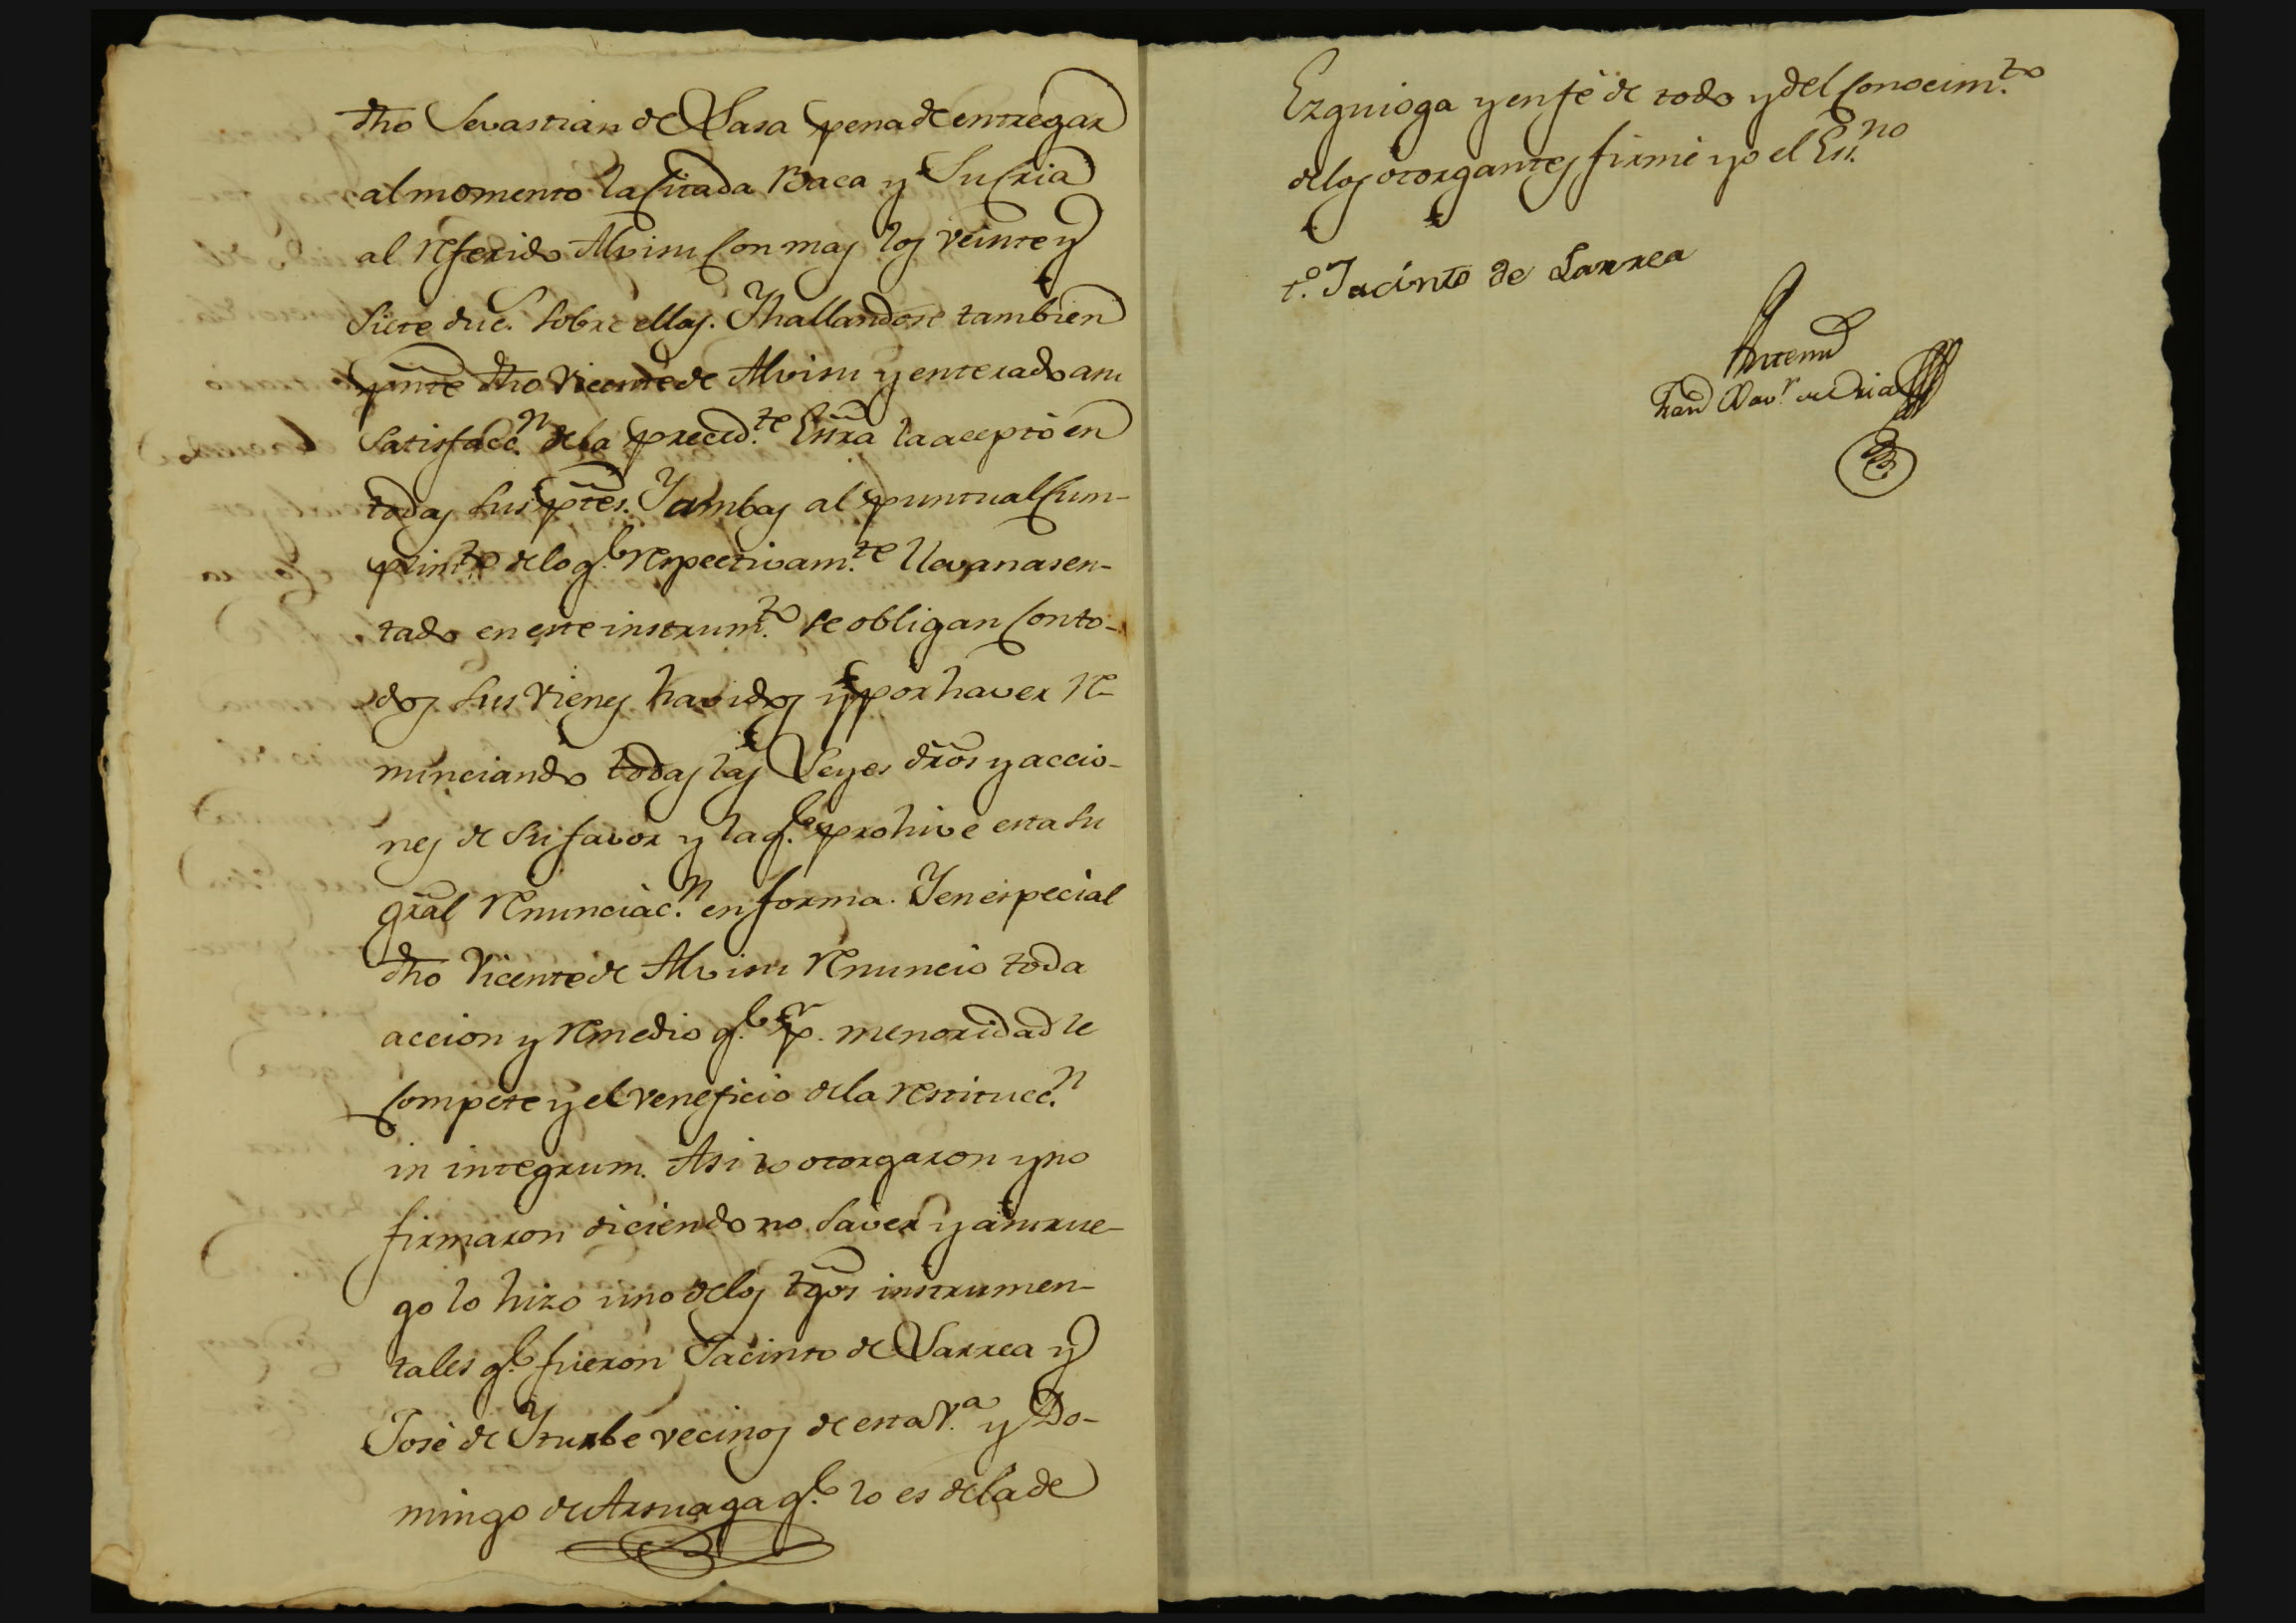 dho Sevastian de Lasa pena de entregar
al momento la citada Baca y Su Cria
al referido Alvisu con mas los veinte y
siete duc.s sobre ellos. Y hallandose tambien
pnte dho Vicente de Alvisu y enterado a su
satisfacc.n de la preced.te Essra la aceptò en
todas sus ptes. Y ambas al puntual Cum-
plim.to de lo q.e respectivam.te llevan asen-
tado en este instrum.to se obligan con to-
dos sus vienes havidos y por haver re-
nunciando todas las Leyes dros y accio-
nes de su favor y la q.e prohive esta su
gral renunciac.n en forma. Y en especial
dho Vicente de Alvisu renunciò toda
accion y remedio q.e p.r menoridad le
compete y el veneficio de la restitucc.n
in integrum. Asi lo otorgaron y no
firmaron diciendo no saver y a su rue-
go lo hizo uno de los tgos instrumen-
tales q.e fueron Jacinto de Larrea y
Josè de Yturbe vecinos de esta V.a y Do-
mingo de Arsuaga q.e lo es de la de
Ezquioga y en fè de todo y del conocim.to
de los otorgantes firmè yo el Ess.no
t.o Jacinto de Larrea
Antemi